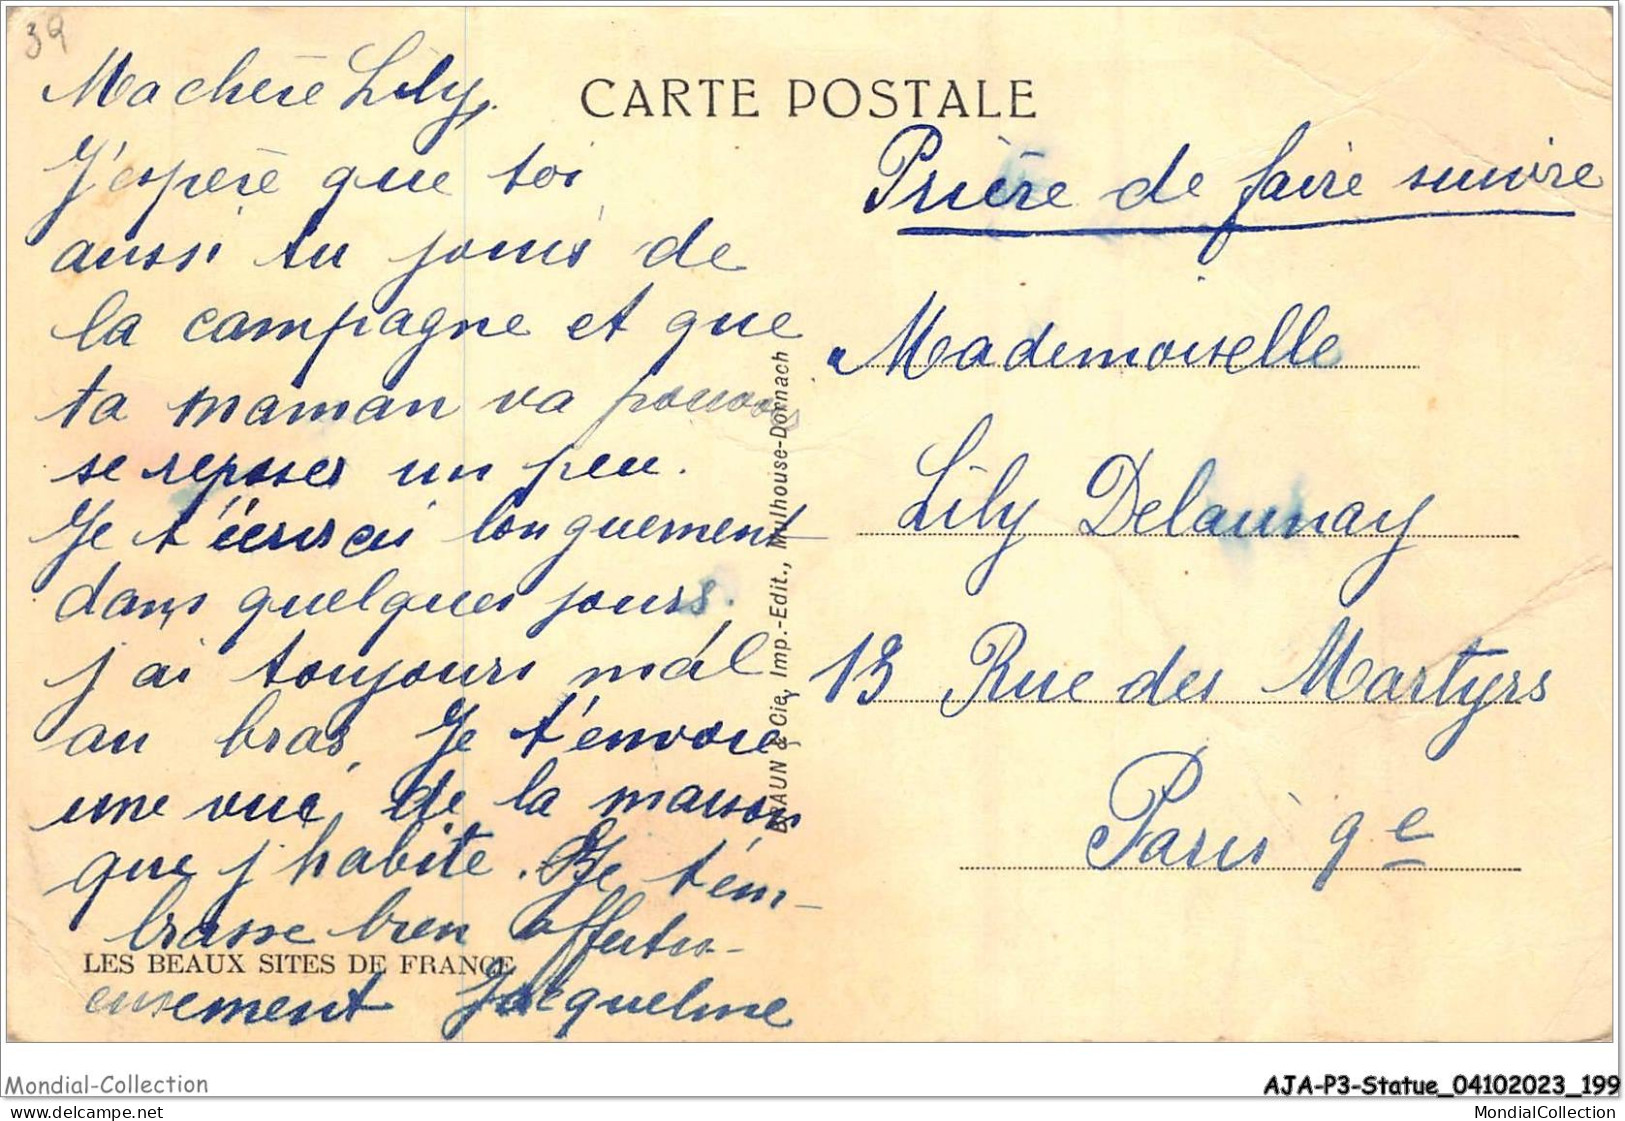 39
Ma chère Lily,
J'espère que toi
aussi tu jouis de
la campagne et que
ta maman va pouvoir
se reposer un peu.
Je t'écrirai longuement
dans quelques jours.
j'ai toujours mal
au bras. Je t'envoie
une vue de la maison
que j'habite. Je t'em-
brasse bien affectu-
eusement Jacqueline
LES BEAUX SITES DE FRANCE
CARTE POSTALE
BRAUN & Cie, Imp.-Edit., Mulhouse-Dornach
Prière de faire suivre
Mademoiselle
Lily Delaunay
13 Rue des Martyrs
Paris 9e
Mondial-Collection
delcampe.net
AJA-P3-Statue_04102023_199
MondialCollection